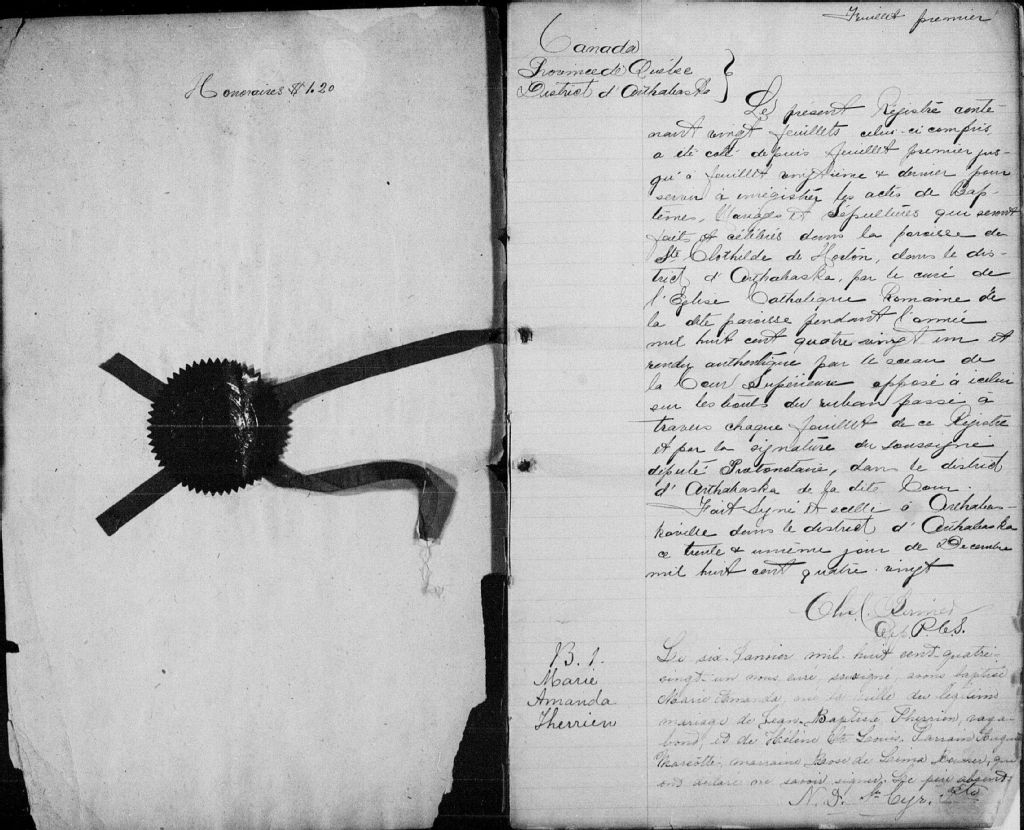 Honoraires $1.20
Feuillet premier
Canada
Province de Québec
District d'Arthabaska
Le présent Registre conte-
nant vingt feuillets celui-ci compris
a été coté depuis feuillet premier jus-
qu'à feuillet vingtième & dernier pour
servir à enrégistrer les actes de Bap-
têmes, Mariages et Sépultures qui seront
faits et célébrés dans la paroisse de
Ste Clothilde de Horton, dans le dis-
trict d'Arthabaska, par le curé de
l'Eglise Catholique Romaine de
la dite paroisse pendant l'année
mil huit cent quatre vingt un et
rendu authentique par le sceau de
la Cour Supérieure apposé à icelui
sur les bouts du ruban passé à
travers chaque feuillet de ce Registre
et par la signature du soussigné
député Protonotaire, dans le district
d'Arthabaska de la dite Cour.
Fait signé et scellé à Arthabas-
kaville dans le district d'Arthabaska
ce trente & unième jour de Décembre
mil huit cent quatre-vingt
Dep P.C.S.
B. 1.
Marie
Amanda
Therrien
Le six Janvier mil huit cent quatre-
vingt-un nous curé soussigné, avons baptisé
Marie Amanda, née la veille du légitime
mariage de Jean-Baptiste Therrien, vaga-
bond, et de Hélène St Louis. Parrain
Marcotte, marraine Rose de Lima qui
ont déclaré ne savoir signer. Le père absent.
N. D. St Cyr. Ptre